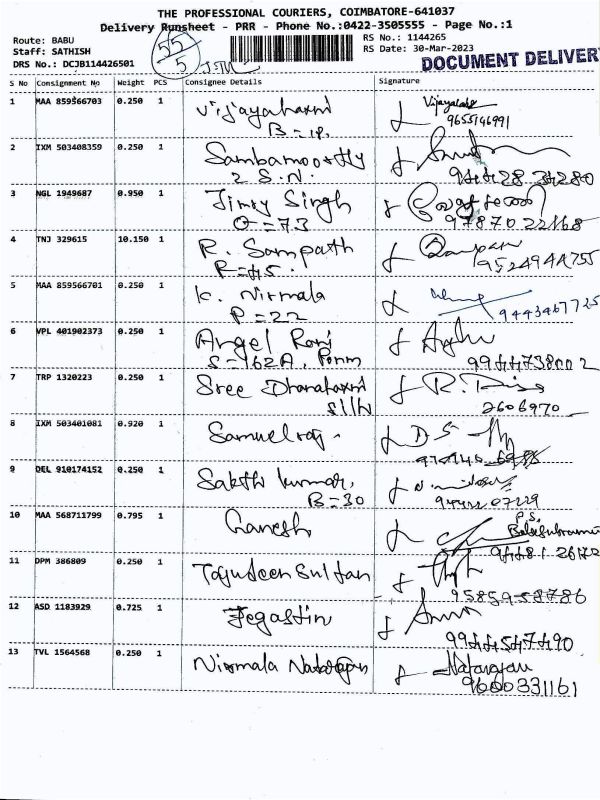 THE PROFESSIONAL COURIERS, COIMBATORE-641037
Delivery Runsheet - PRR - Phone No.:0422-3505555 - Page No.:1
Route: BABU
Staff: SATHISH
DRS No.: DCJB114426501
55
5
RS No.: 1144265
RS Date: 30-Mar-2023
DOCUMENT DELIVER
S No Consignment No Weight PCS Consignee Details Signature
1 MAA 859566703 0.250 1 Vijayalaxmi Vijayalax
B=18. 9655146991
2 IXM 503408359 0.250 1 Sambamoorthy
2 S.N. 94428 34280
3 NGL 1949687 0.950 1 Jimry Singh
O=73 97870 22168
4 TNJ 329615 10.150 1 R. Sampath Sampath
R=45. 9524944755
5 MAA 859566701 0.250 1 K. Nirmala
P=22 9443467725
6 VPL 401902373 0.250 1 Angel Rani
S=162A, Ponm 9944738002
7 TRP 1320223 0.250 1 Sree Dhanalaxmi
S11W 2606970
8 IXM 503401081 0.920 1 Samuelraj D.S
9 DEL 910174152 0.250 1 Sakthi Kumar,
B=30 94422 07229
10 MAA 568711799 0.795 1 Ganesh P.S.
Balasubramani
94481 26170
11 DPM 386809 0.250 1 Tajudeen Sultan
95859 58786
12 ASD 1183929 0.725 1 Jegastin
9944547490
13 TVL 1564568 0.250 1 Nirmala Natarajan Natarajan
9600331161